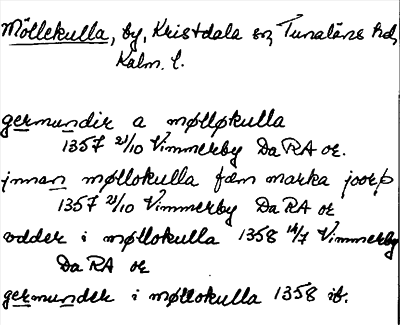 Möllekulla, by, Kristdala sn, Tunaläns hd,
Kalm. l.
germundir a mølløkulla
1357 21/10 Vimmerby Da RA or.
jnnan møllokulla fæm marka jorþ
1357 21/10 Vimmerby Da RA or
odder i møllokulla 1358 14/7 Vimmerby
Da RA or
germunder i møllokulla 1358 ib.